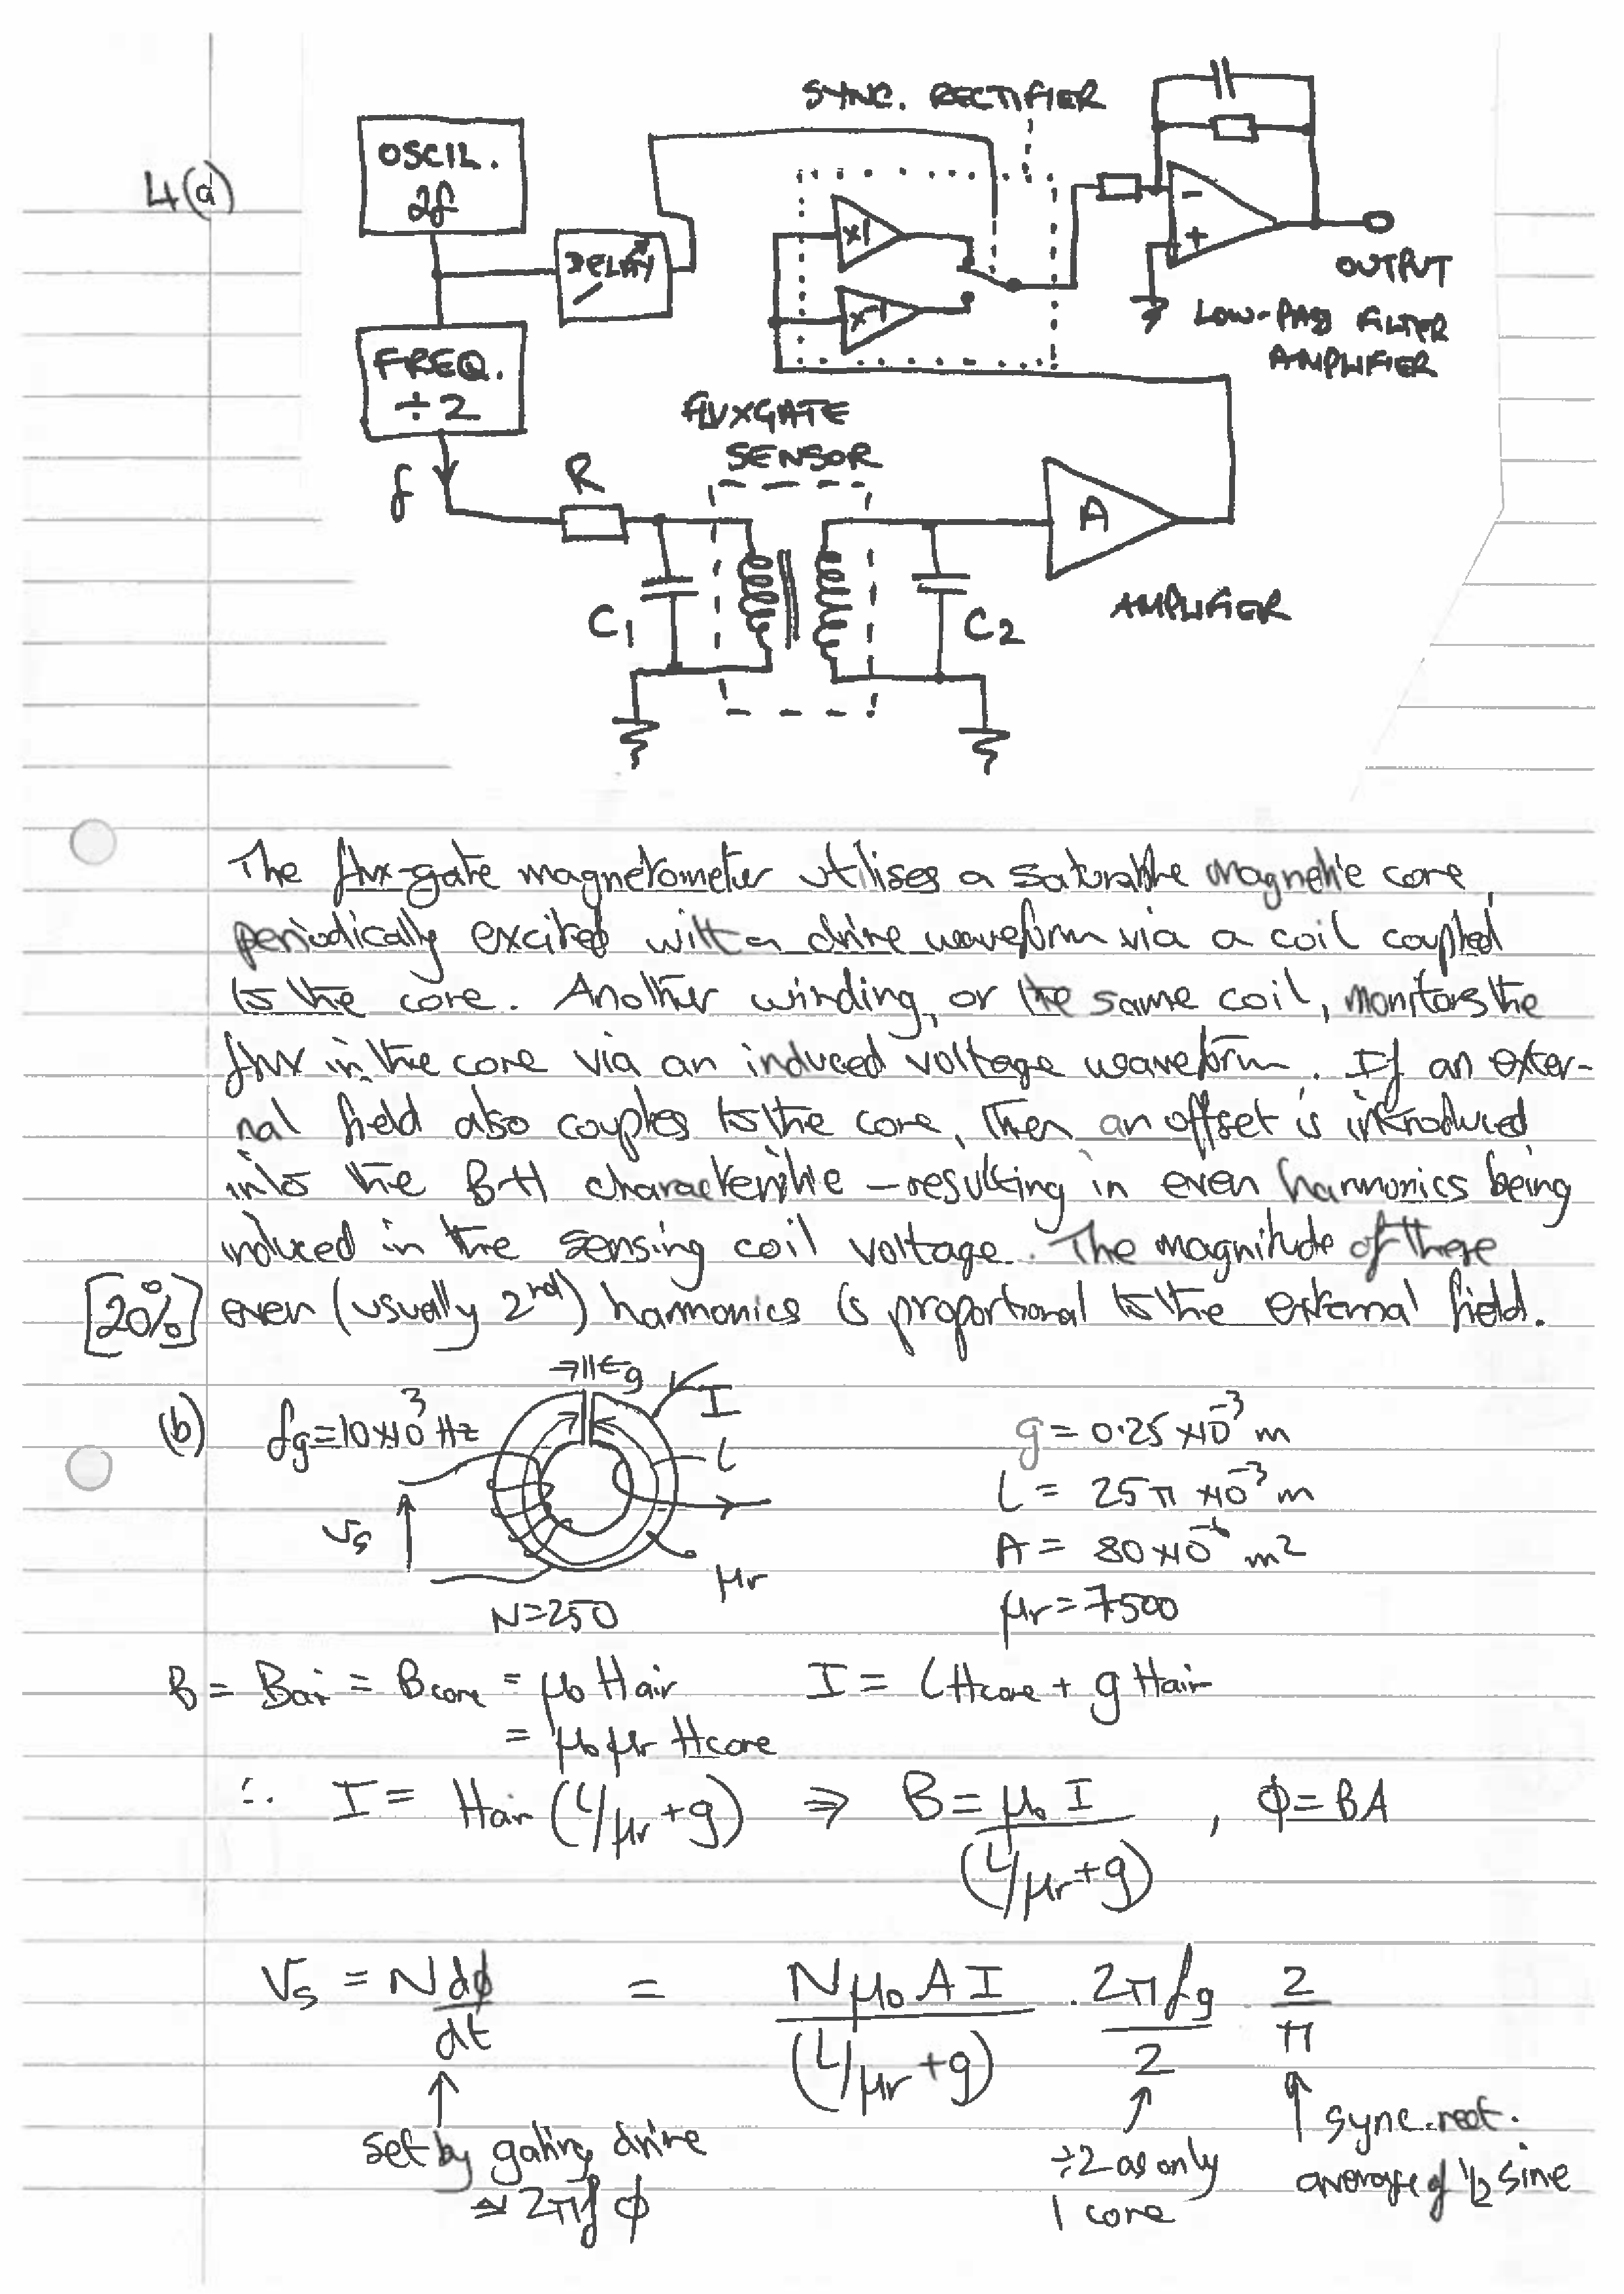 4(a)
OSCIL.
2f
DELAY
FREQ.
÷2
f
R
C1
FLUXGATE
SENSOR
C2
SYNC. RECTIFIER
x1
x-1
A
AMPLIFIER
-
+
OUTPUT
LOW-PASS FILTER
AMPLIFIER
The flux-gate magnetometer utilises a saturable magnetic core,
periodically excited with a drive waveform via a coil coupled
to the core. Another winding, or the same coil, monitors the
flux in the core via an induced voltage waveform. If an exter-
nal field also couples to the core, then an offset is introduced
into the B-H characteristic – resulting in even harmonics being
induced in the sensing coil voltage. The magnitude of these
[20%] even (usually 2nd) harmonics is proportional to the external field.
(b) fg = 10×10³ Hz
→||← g
I
L
Vs
μr
N=250
g = 0.25×10⁻³ m
L = 25π×10⁻³ m
A = 80×10⁻⁶ m²
μr = 7500
B = Bair = Bcore = μo Hair I = L Hcore + g Hair
= μo μr Hcore
∴ I = Hair (L/μr + g) ⇒ B = μo I / (L/μr + g) , φ = BA
Vs = N dφ/dt = N μo A I / (L/μr + g) . 2πfg / 2 . 2/π
set by gating drive
≃ 2πf φ
÷2 as only
1 core
sync. rect.
average of ½ sine